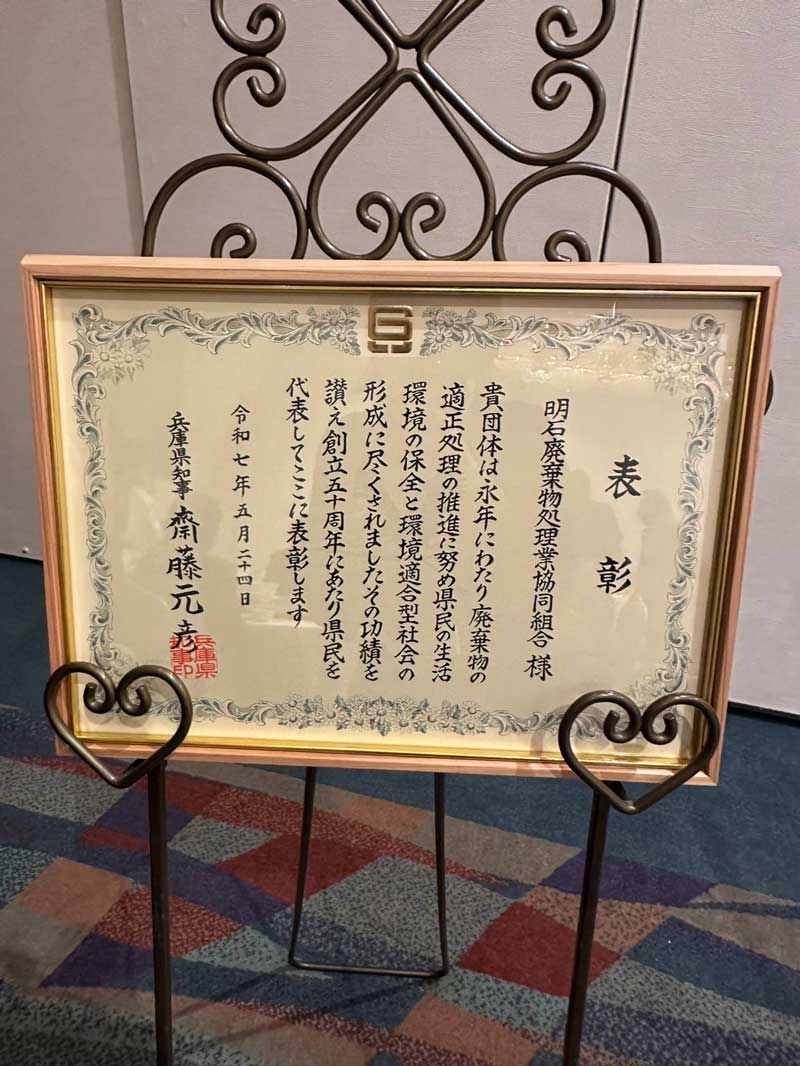 表彰
明石廃棄物処理業協同組合 様
貴団体は永年にわたり廃棄物の
適正処理の推進に努め県民の生活
環境の保全と環境適合型社会の
形成に尽くされましたその功績を
讃え創立五十周年にあたり県民を
代表してここに表彰します
令和七年五月二十四日
兵庫県知事 齋藤元彦
兵庫県
知事印